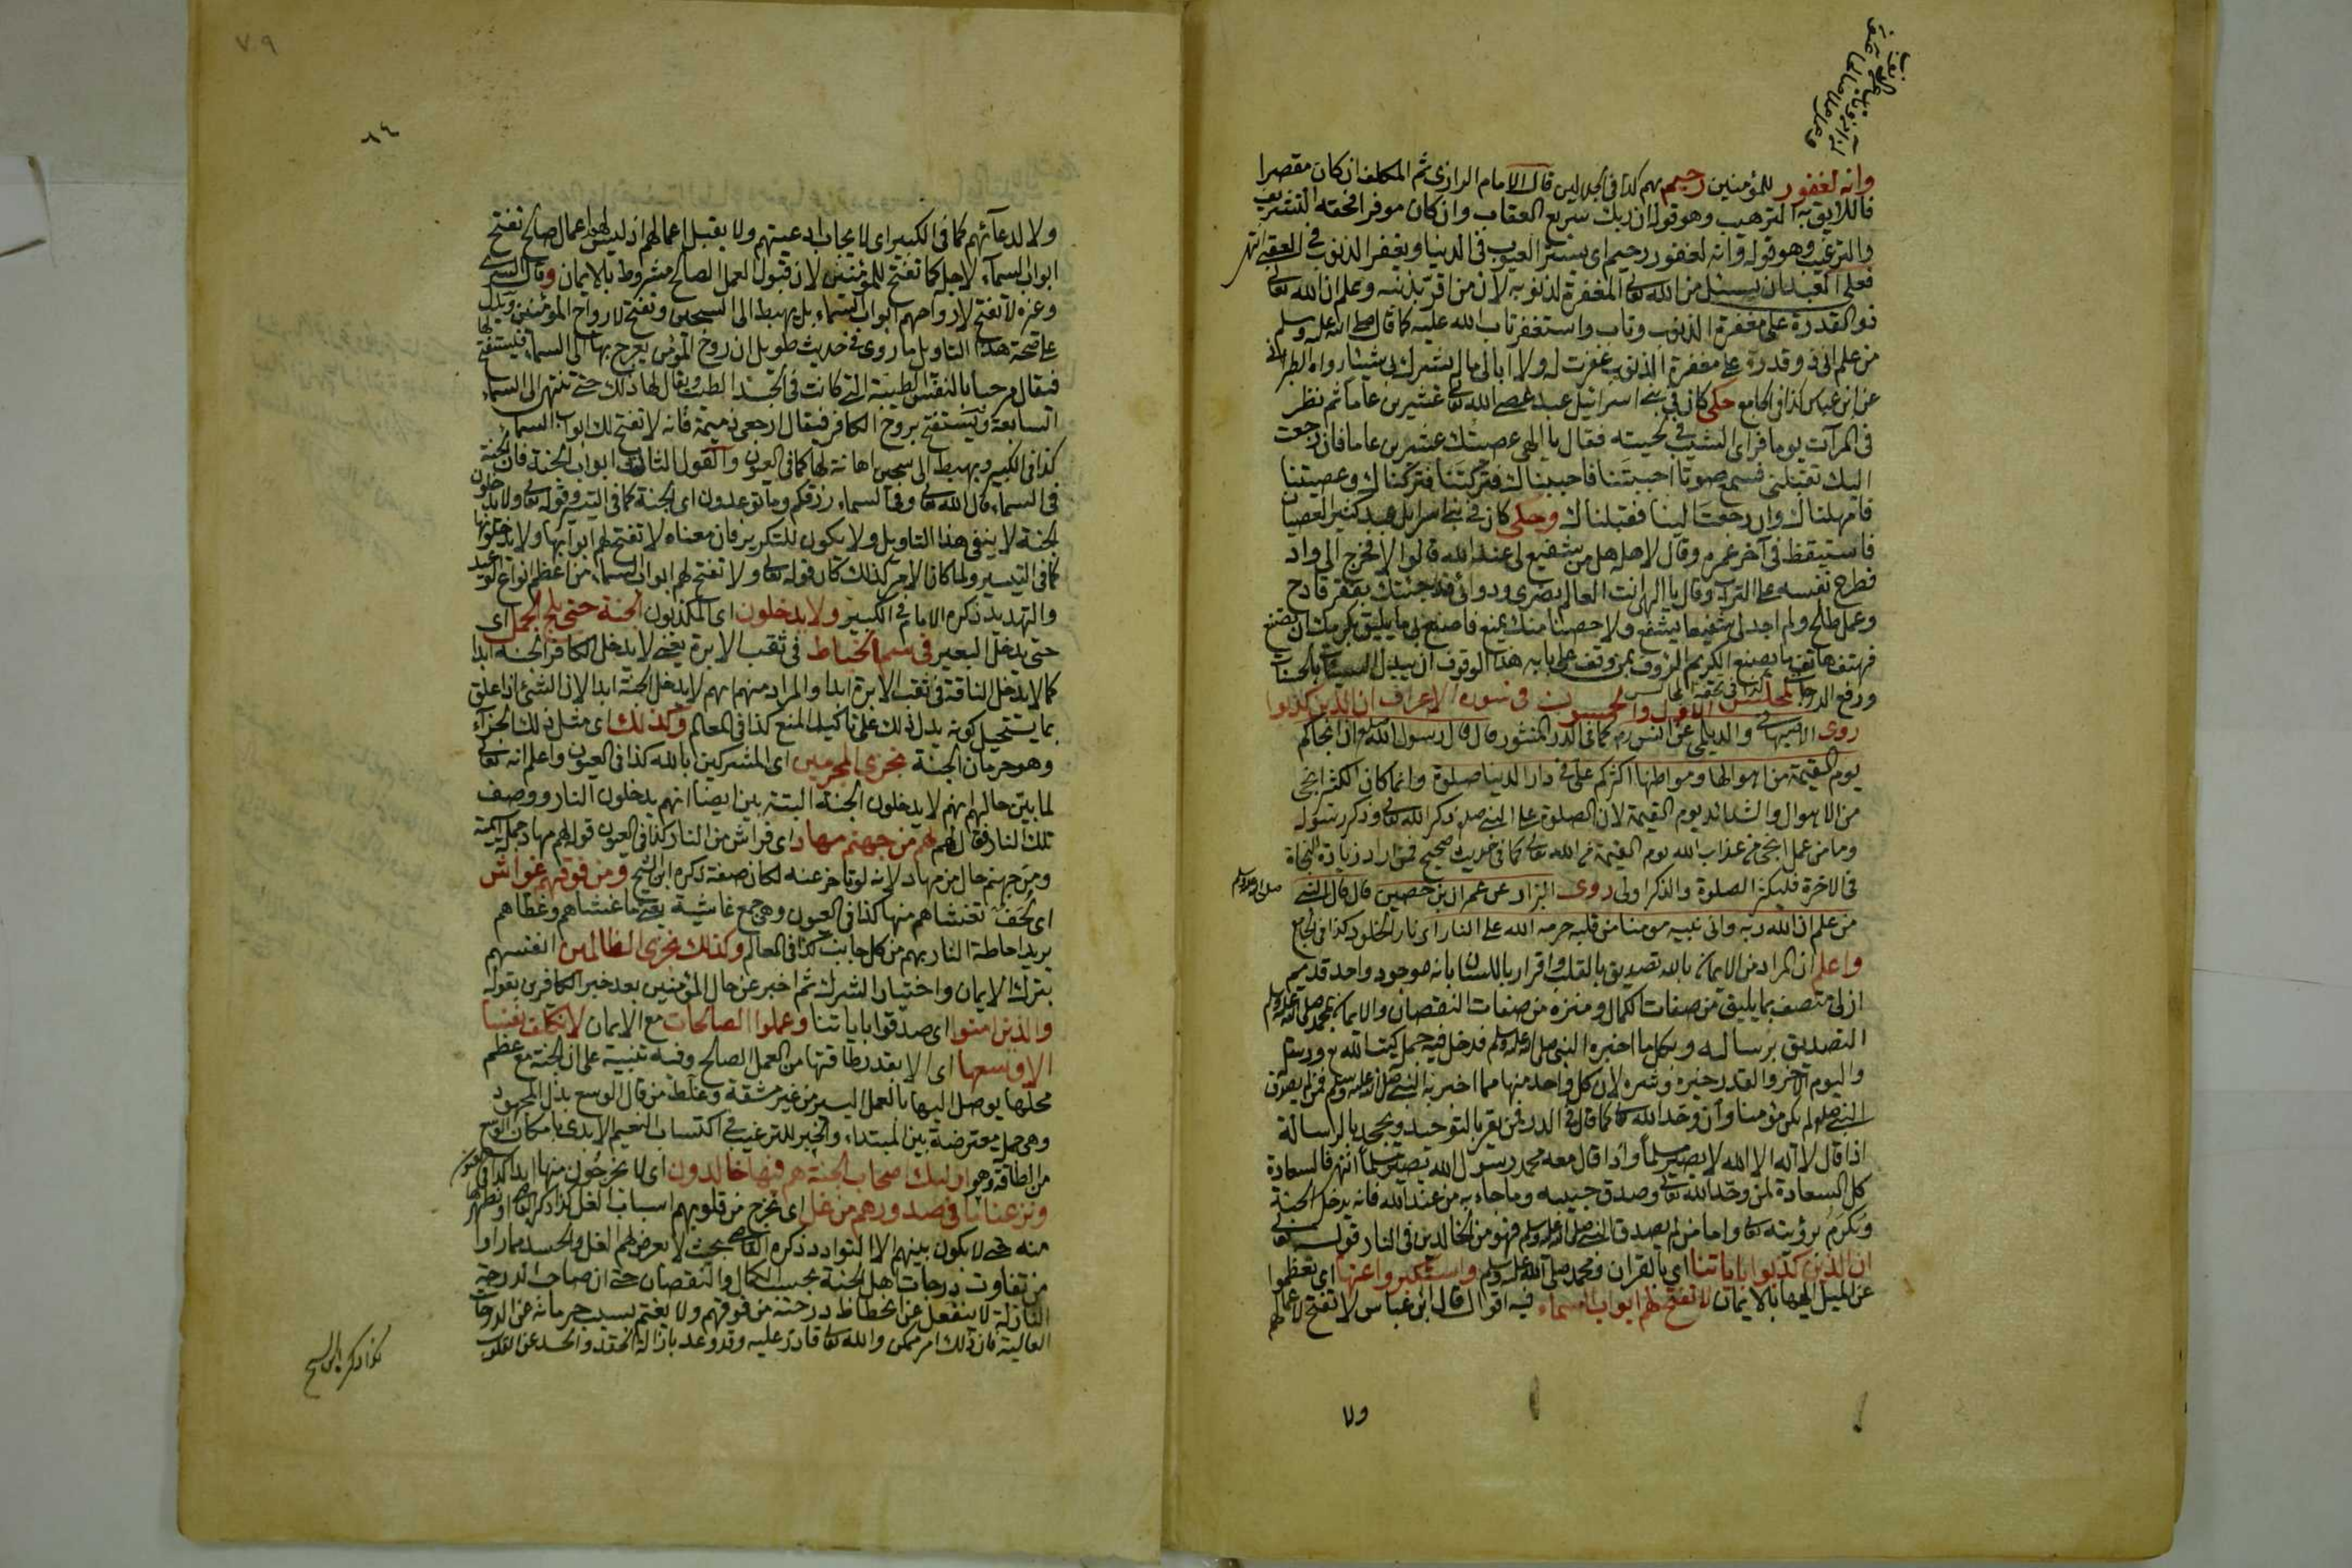 وانه لغفور للمؤمنين رحيم بهم كذا في الجلالين قال الامام الرازي ثم المكلف ان كان مقصرا
فاللايق به الترهيب وهو قوله ان ربك سريع العقاب وان كان موفرا لحقه التشريف
والترغيب وهو قوله وانه لغفور رحيم اى يستر العيوب في الدنيا ويغفر الذنوب في العقبى انتهى
فعلى العبد ان يسئل من الله تعالى المغفرة لذنوبه لان من اقر بذنبه وعلم ان الله تعالى
ذو القدرة على مغفرة الذنوب وتاب واستغفر تاب الله عليه كما قال صلى الله عليه وسلم
من علم انى ذو قدرة على مغفرة الذنوب غفرت له ولا ابالى ما لم يشرك بى شيئا رواه الطبرانى
عن ابن عباس كذا في الجامع حكى كان في بنى اسرائيل عبد عصى الله تعالى عشرين عاما ثم نظر
في المرآت يوما فراى الشيب في لحيته فقال يا الهى عصيتك عشرين عاما فان رجعت
اليك تقبلنى فسمع صوتا احببتنا فاحببناك فتركتنا فتركناك وعصيتنا
فامهلناك وان رجعت الينا فقبلناك وحكى كان في بنى اسرايل عبد كثير العصيان
فاستيقظ في آخر عمره وقال لاهله هل من شفيع لى عند الله قالوا لا فخرج الى واد
فطرح نفسه على التراب وقال يا الهى انت العالم بضرى ودوائى فقد جئتك بفقر قادح
وعمل طالح ولم اجد لى شفيعا يشفع ولا حصنا منك يمنع فاصنع بى ما يليق بكرمك ان تصنع
فهتف هاتف ما يصنع الكريم الرؤف بمن وقف على بابه هذا الوقوف ان يبدل السيئات بالحسنات
ورفع الدرجات كذا في تحفة المجالس المجلس الاول والخمسون في سورة الاعراف ان الذين كذبوا
روى الاصبهانى والديلمى عن انس رضه كما في الدر المنثور قال قال رسول الله صلعم ان انجاكم
يوم القيمة من اهوالها ومواطنها اكثركم على في دار الدنيا صلوة وانما كان الكثر انجى
من الاهوال والشدائد يوم القيمة لان الصلوة على النبى صلعم ذكر الله تعالى وذكر رسوله
وما من عمل انجى من عذاب الله يوم القيمة من الله تعالى كما في حديث صحيح فمن اراد زيادة النجاة
في الاخرة فليكثر الصلوة والذكر اولى روى البزاد عن عمران بن حصين قال قال النبى
صلى الله عليه وسلم
من علم ان الله ربه وانى نبيه مومنا من قلبه حرمه الله على النار اى نار الخلود كذا في الجامع
واعلم ان المراد من الايمان بالله تصديق بالقلب واقرار باللسان بانه موجود واحد قديم
ازلى متصف بما يليق من صفات الكمال ومنزه من صفات النقصان والايمان بمحمد صلى الله عليه وسلم
التصديق برسالته وبكل ما اخبره النبى صلى الله عليه وسلم فدخل فيه جمل كتب الله تع ورسله
واليوم الآخر والقدر خيره وشره لان كل واحد منها مما اخبر به النبى صلى الله عليه وسلم فمن لم يصدق
النبى صلعم لم يكن مؤمنا وان وحد الله تعالى كما قال في الدرر فمن يقر بالتوحيد ويجحد بالرسالة
اذا قال لا اله الا الله لا يصير مسلما واذا قال معه محمد رسول الله يصير مسلما انتهى فالسعادة
كل السعادة لمن وحد الله تعالى وصدق حبيبه وما جاء به من عند الله فانه يدخل الجنة
ويكرم برؤيته تعالى واما من لم يصدق النبى صلى الله عليه وسلم فهو من الخالدين في النار قوله تعالى
ان الذين كذبوا باياتنا اى بالقران ومحمد صلى الله عليه وسلم واستكبروا عنها اى تعظموا
عن الميل اليها بالايمان لا تفتح لهم ابواب السماء فيه اقوال قال ابن عباس لا تفتح لاعمالهم
ولا
٧٠٩
٦٤
ولا لدعائهم كما في الكبير اى لا يجاب ادعيتهم ولا يقبل اعمالهم اذ ليس لهم اعمال صالح تفتح
ابواب السماء لاجله كما تفتح للمؤمنين لان قبول العمل الصالح مشروط بالايمان وقال السدى
وغره لا تفتح لارواحهم ابواب السماء بل يهبط الى السجين وتفتح لارواح المؤمنين ويدل
على صحة هذا التاويل ما روى في حديث طويل ان روح المؤمن يعرج بها الى السماء فيستفتح لها
فيقال مرحبا بالنفس الطيبة التى كانت في الجسد الطيب ويقال لها ذلك حتى تنتهى الى السماء
السابعة ويستفتح بروح الكافر فيقال ارجعى ذميمة فانه لا تفتح لك ابواب السماء
كذا في الكبير ويهبط الى سجين اهانة لها كما في العيون والقول الثالث ابواب الجنة فان الجنة
في السماء قال الله تعالى وفي السماء رزقكم وما توعدون اى الجنة كما في التيسير وقوله تعالى ولا يدخلون
الجنة لا ينفى هذا التاويل ولا يكون للتكرير فان معناه لا تفتح لهم ابوابها ولا يدخلونها
كما في التيسير ولما كان الامر كذلك كان قوله تعالى ولا تفتح لهم ابواب السماء من اعظم انواع الوعيد
والتهديد ذكره الامام في الكبير ولا يدخلون اى المكذبون الجنة حتى يلج الجمل اى
حتى يدخل البعير في سم الخياط في ثقب الابرة يعنى لا يدخل الكافر الجنة ابدا
كما لا يدخل الناقة في ثقب الابرة ابدا والمراد منهم انهم لا يدخل الجنة ابدا لان الشئ اذا علق
بما يستحيل كونه يدل ذلك على تاكيد المنع كذا في المعالم وكذلك اى مثل ذلك الجزاء
وهو حرمان الجنة نجزى المجرمين اى المشركين بالله كذا في العيون واعلم انه تعالى
لما بين حالهم انهم لا يدخلون الجنة البتة بين ايضا انهم يدخلون النار ووصف
تلك النار فقال لهم لهم من جهنم مهاد اى فراش من النار كذا في العيون قوله لهم مهاد جملة اسمية
ومن جهنم حال من مهاد لانه لو تاخر عنه لكان صفة ذكره ابن الشيخ ومن فوقهم غواش
اى لحف تغشاهم منها كذا في العيون وهى جمع غاشية يعنى ما غشاهم وغطاهم
يريد احاطة النار بهم من كل جانب كذا في المعالم وكذلك نجزى الظالمين انفسهم
بترك الايمان واختيار الشرك ثم اخبر عن حال المؤمنين بعد خبر الكافرين بقوله
والذين امنوا اى صدقوا باياتنا وعملوا الصالحات مع الايمان لا نكلف نفسا
الا وسعها اى الا بقدر طاقتها من العمل الصالح وفيه تنبيه على ان الجنة مع عظم
محلها يوصل اليها بالعمل اليسير من غير مشقة وغلط من قال الوسع بذل المجهود
وهى جمل معترضة بين المبتداء والخبر للترغيب في اكتساب النعيم الابدى بامكان الوسع
من الطاقة وهو اولئك اصحاب الجنة هم فيها خالدون اى لا يخرجون منها ابدا كذا في العيون
ونزعنا ما في صدورهم من غل اى نخرج من قلوبهم اسباب الغل كذا ذكر القاضى او نطهرها
منه حتى لا يكون بينهم الا التوادد ذكره القاضى بحيث لا يعرض لهم الغل والحسد مما راوا
من تفاوت درجات اهل الجنة بحسب الكمال والنقصان حتى ان صاحب الدرجة
النازلة لا ينفعل عن انحطاط درجته من فوقهم ولا يغتم بسبب حرمانه عن الدرجات
العالية فان ذلك امر ممكن والله تعالى قادر عليه وقد وعد بازالة الحقد والحسد عن القلوب
كذا ذكر ابن الشيخ